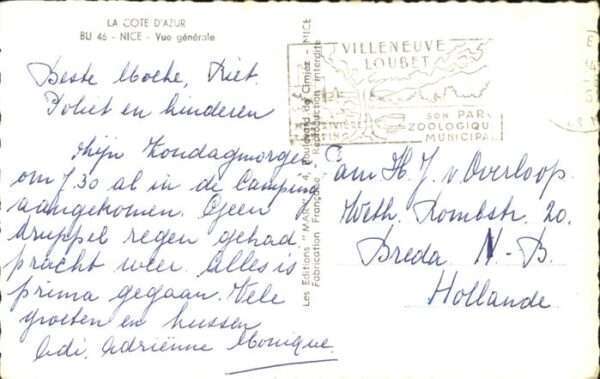 LA COTE D'AZUR
BU 46 - NICE - Vue générale
Beste Moeke, Riet.
Poliet en kinderen
Zijn Zondagmorgen
om 7.30 al in de Camping
aangekomen. Geen
druppel regen gehad
pracht weer. Alles is
prima gegaan. Vele
groeten en kussen
Adi. Adriënne Monique.
Les Editions "MAR", 4, Boulevard de Cimiez - NICE
Fabrication Française - Reproduction Interdite
VILLENEUVE
LOUBET
SON PARC
ZOOLOGIQU
MUNICIPAL
am H. J. v. Overloop.
Weth. Rombstr. 20.
Breda N-B.
Hollande